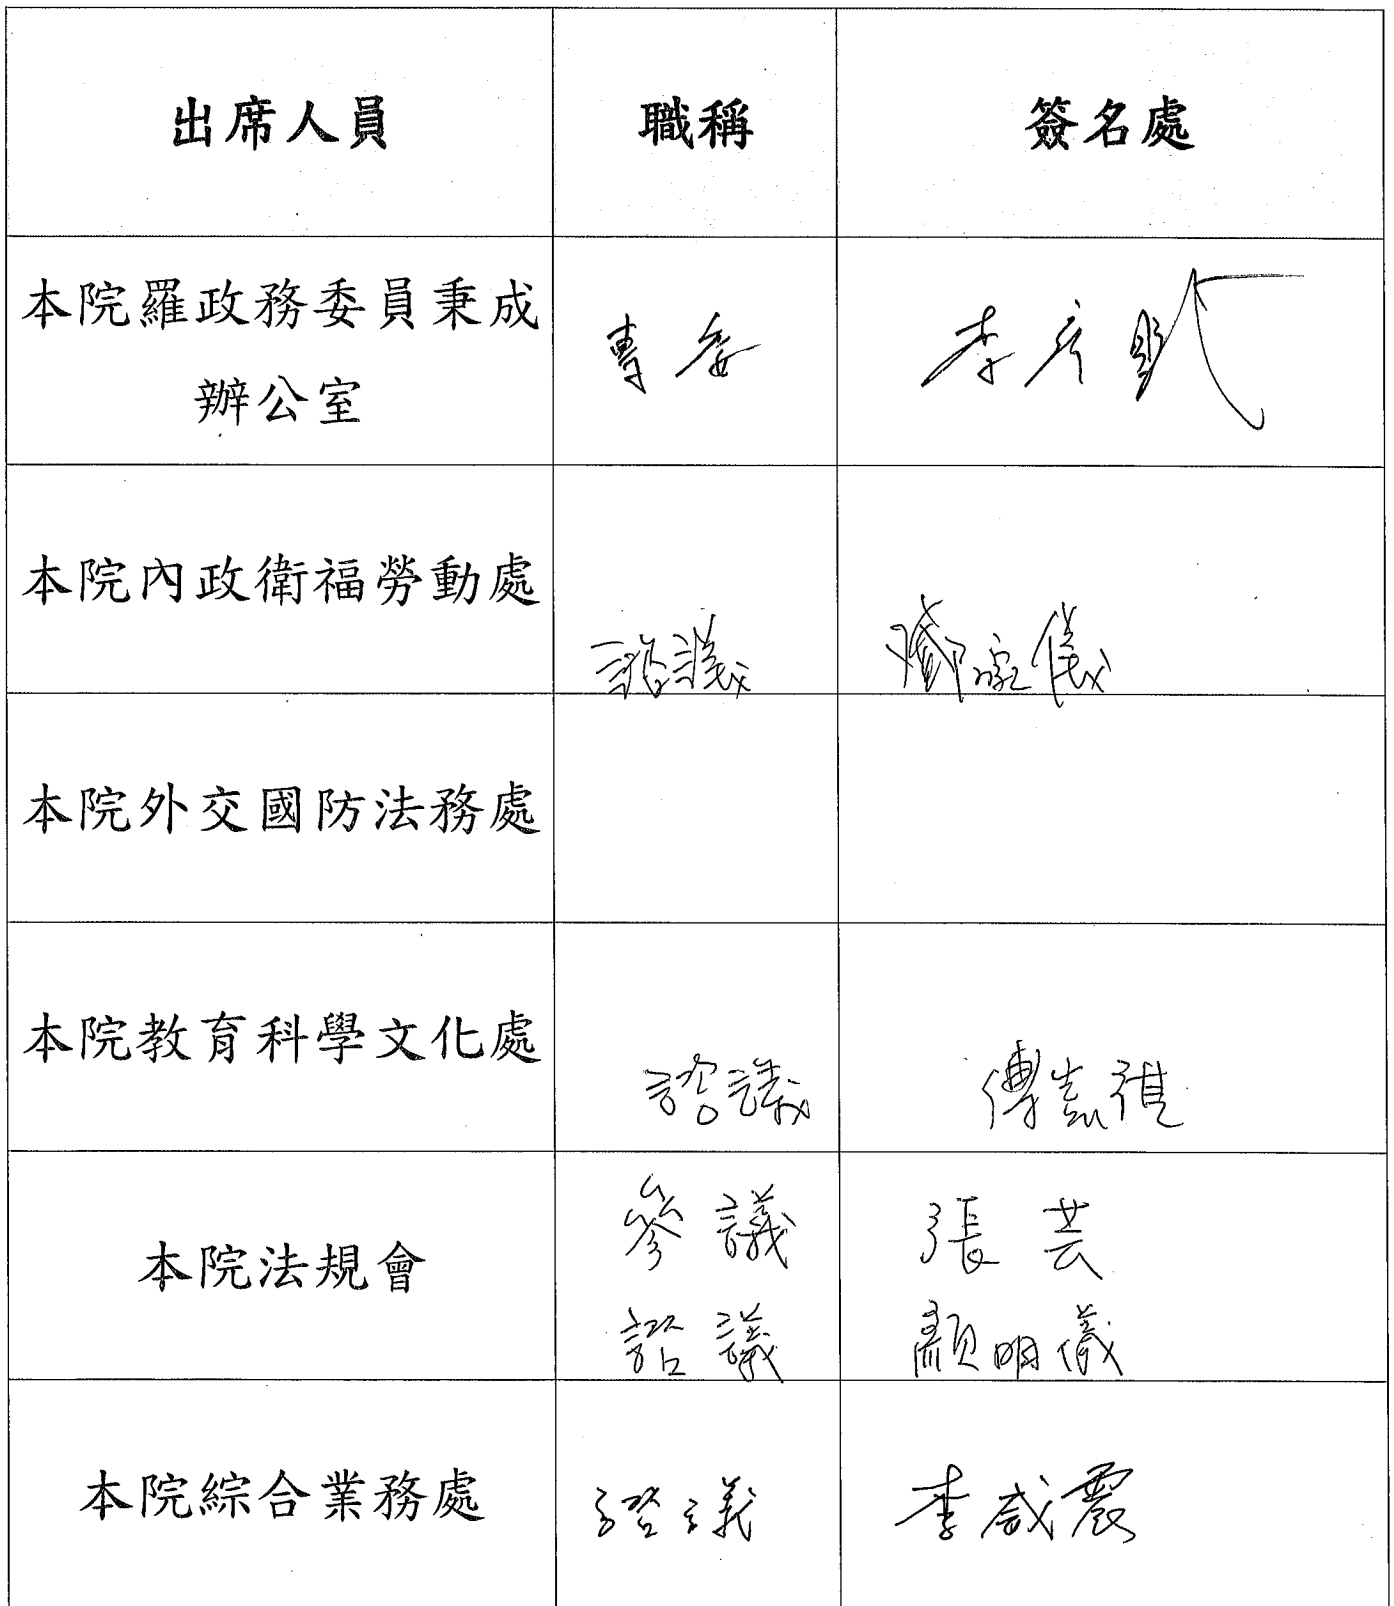 出席人員 職稱 簽名處
本院羅政務委員秉成
辦公室
專委 李彥
本院內政衛福勞動處
諮議 儀
本院外交國防法務處
本院教育科學文化處
諮議 傅
本院法規會
參議 張芸
諮議 顏明儀
本院綜合業務處
諮議 李咸震